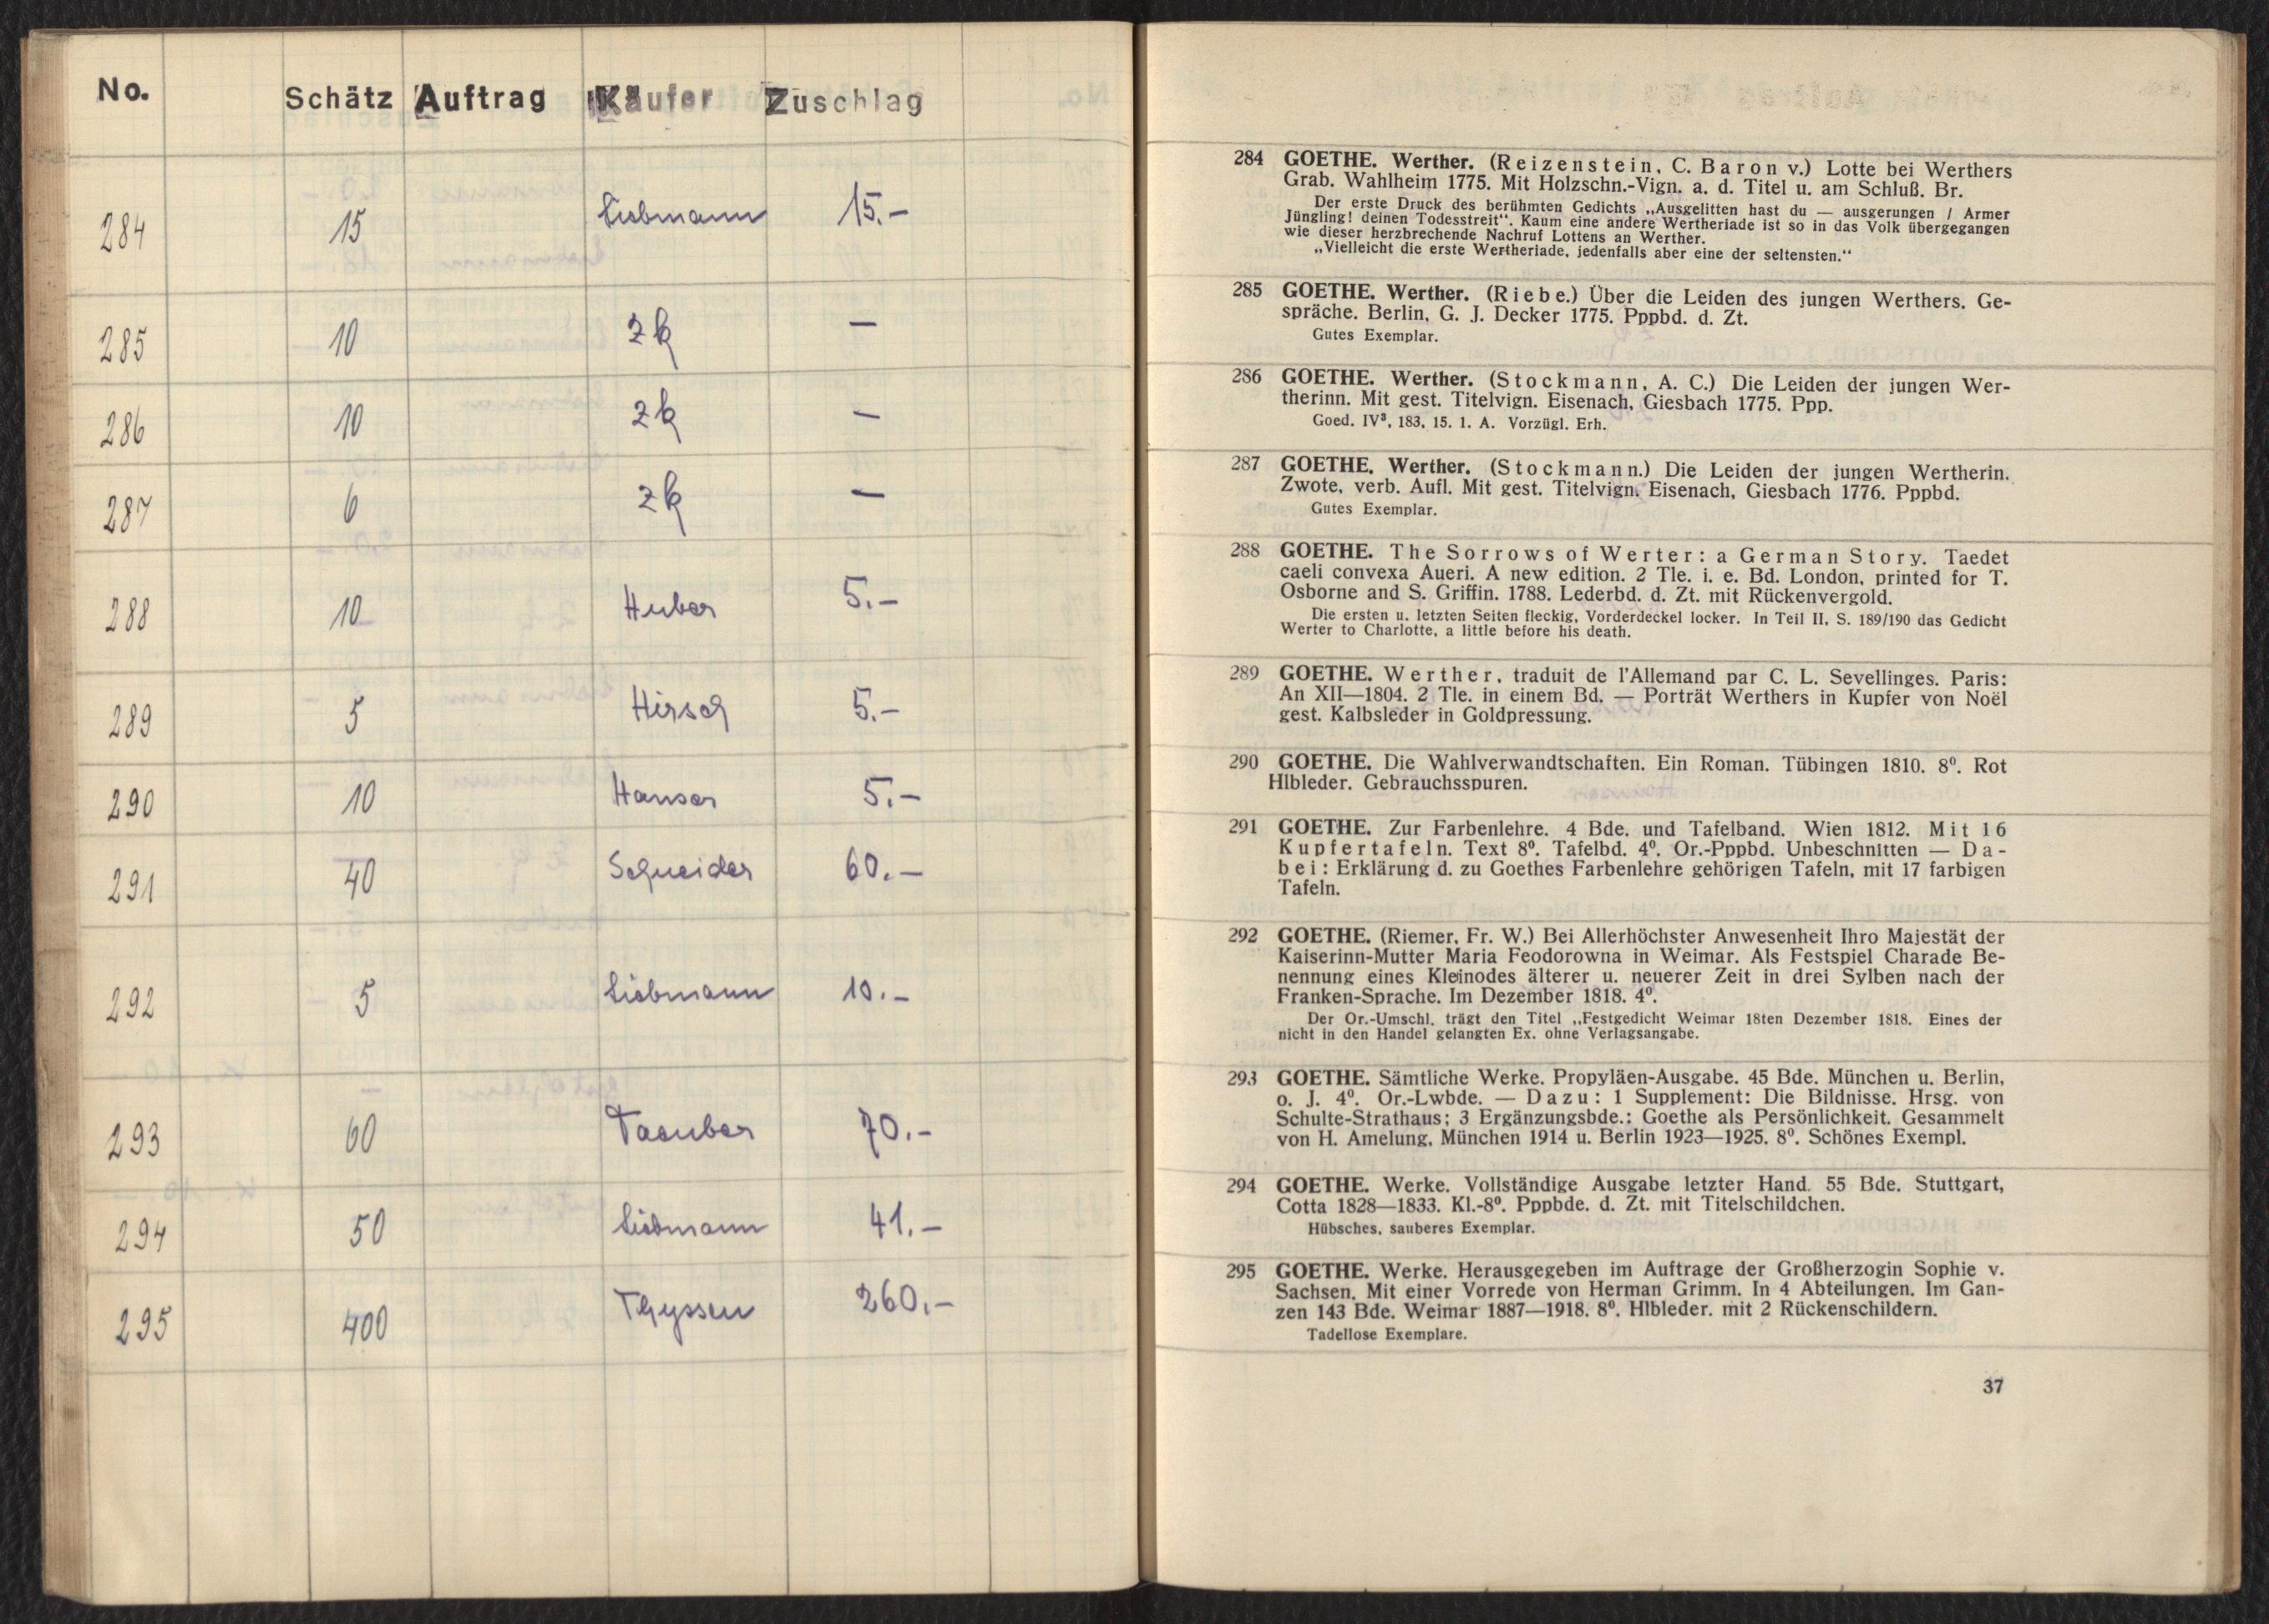 No. Schätz Auftrag Käufer Zuschlag
284 15 Liebmann 15.-
285 10 zk —
286 10 zk —
287 6 zk —
288 10 Huber 5.-
289 5 Hirsch 5.-
290 10 Hauser 5.-
291 40 Schneider 60.-
292 5 Liebmann 10.-
293 60 Taeuber 70.-
294 50 Liebmann 41.-
295 400 Thyssen 260.-
284 GOETHE. Werther. (Reizenstein, C. Baron v.) Lotte bei Werthers
Grab. Wahlheim 1775. Mit Holzschn.-Vign. a. d. Titel u. am Schluß. Br.
Der erste Druck des berühmten Gedichts „Ausgelitten hast du — ausgerungen / Armer
Jüngling! deinen Todesstreit“. Kaum eine andere Wertheriade ist so in das Volk übergegangen
wie dieser herzbrechende Nachruf Lottens an Werther.
„Vielleicht die erste Wertheriade, jedenfalls aber eine der seltensten.“
285 GOETHE. Werther. (Riebe.) Über die Leiden des jungen Werthers. Ge-
spräche. Berlin, G. J. Decker 1775. Pppbd. d. Zt.
Gutes Exemplar.
286 GOETHE. Werther. (Stockmann, A. C.) Die Leiden der jungen Wer-
therinn. Mit gest. Titelvign. Eisenach, Giesbach 1775. Ppp.
Goed. IV³, 183, 15. 1. A. Vorzügl. Erh.
287 GOETHE. Werther. (Stockmann.) Die Leiden der jungen Wertherin.
Zwote, verb. Aufl. Mit gest. Titelvign. Eisenach, Giesbach 1776. Pppbd.
Gutes Exemplar.
288 GOETHE. The Sorrows of Werter: a German Story. Taedet
caeli convexa Aueri. A new edition. 2 Tle. i. e. Bd. London, printed for T.
Osborne and S. Griffin. 1788. Lederbd. d. Zt. mit Rückenvergold.
Die ersten u. letzten Seiten fleckig, Vorderdeckel locker. In Teil II, S. 189/190 das Gedicht
Werter to Charlotte, a little before his death.
289 GOETHE. Werther, traduit de l'Allemand par C. L. Sevellinges. Paris:
An XII—1804. 2 Tle. in einem Bd. — Porträt Werthers in Kupfer von Noël
gest. Kalbsleder in Goldpressung.
290 GOETHE. Die Wahlverwandtschaften. Ein Roman. Tübingen 1810. 8⁰. Rot
Hlbleder. Gebrauchsspuren.
291 GOETHE. Zur Farbenlehre. 4 Bde. und Tafelband. Wien 1812. Mit 16
Kupfertafeln. Text 8⁰. Tafelbd. 4⁰. Or.-Pppbd. Unbeschnitten — Da-
bei: Erklärung d. zu Goethes Farbenlehre gehörigen Tafeln, mit 17 farbigen
Tafeln.
292 GOETHE. (Riemer, Fr. W.) Bei Allerhöchster Anwesenheit Ihro Majestät der
Kaiserinn-Mutter Maria Feodorowna in Weimar. Als Festspiel Charade Be-
nennung eines Kleinodes älterer u. neuerer Zeit in drei Sylben nach der
Franken-Sprache. Im Dezember 1818. 4⁰.
Der Or.-Umschl. trägt den Titel „Festgedicht Weimar 18ten Dezember 1818. Eines der
nicht in den Handel gelangten Ex. ohne Verlagsangabe.
293 GOETHE. Sämtliche Werke. Propyläen-Ausgabe. 45 Bde. München u. Berlin,
o. J. 4⁰. Or.-Lwbde. — Dazu: 1 Supplement: Die Bildnisse. Hrsg. von
Schulte-Strathaus; 3 Ergänzungsbde.: Goethe als Persönlichkeit. Gesammelt
von H. Amelung, München 1914 u. Berlin 1923—1925. 8⁰. Schönes Exempl.
294 GOETHE. Werke. Vollständige Ausgabe letzter Hand. 55 Bde. Stuttgart,
Cotta 1828—1833. Kl.-8⁰. Pppbde. d. Zt. mit Titelschildchen.
Hübsches, sauberes Exemplar.
295 GOETHE. Werke. Herausgegeben im Auftrage der Großherzogin Sophie v.
Sachsen. Mit einer Vorrede von Herman Grimm. In 4 Abteilungen. Im Gan-
zen 143 Bde. Weimar 1887—1918. 8⁰. Hlbleder. mit 2 Rückenschildern.
Tadellose Exemplare.
37